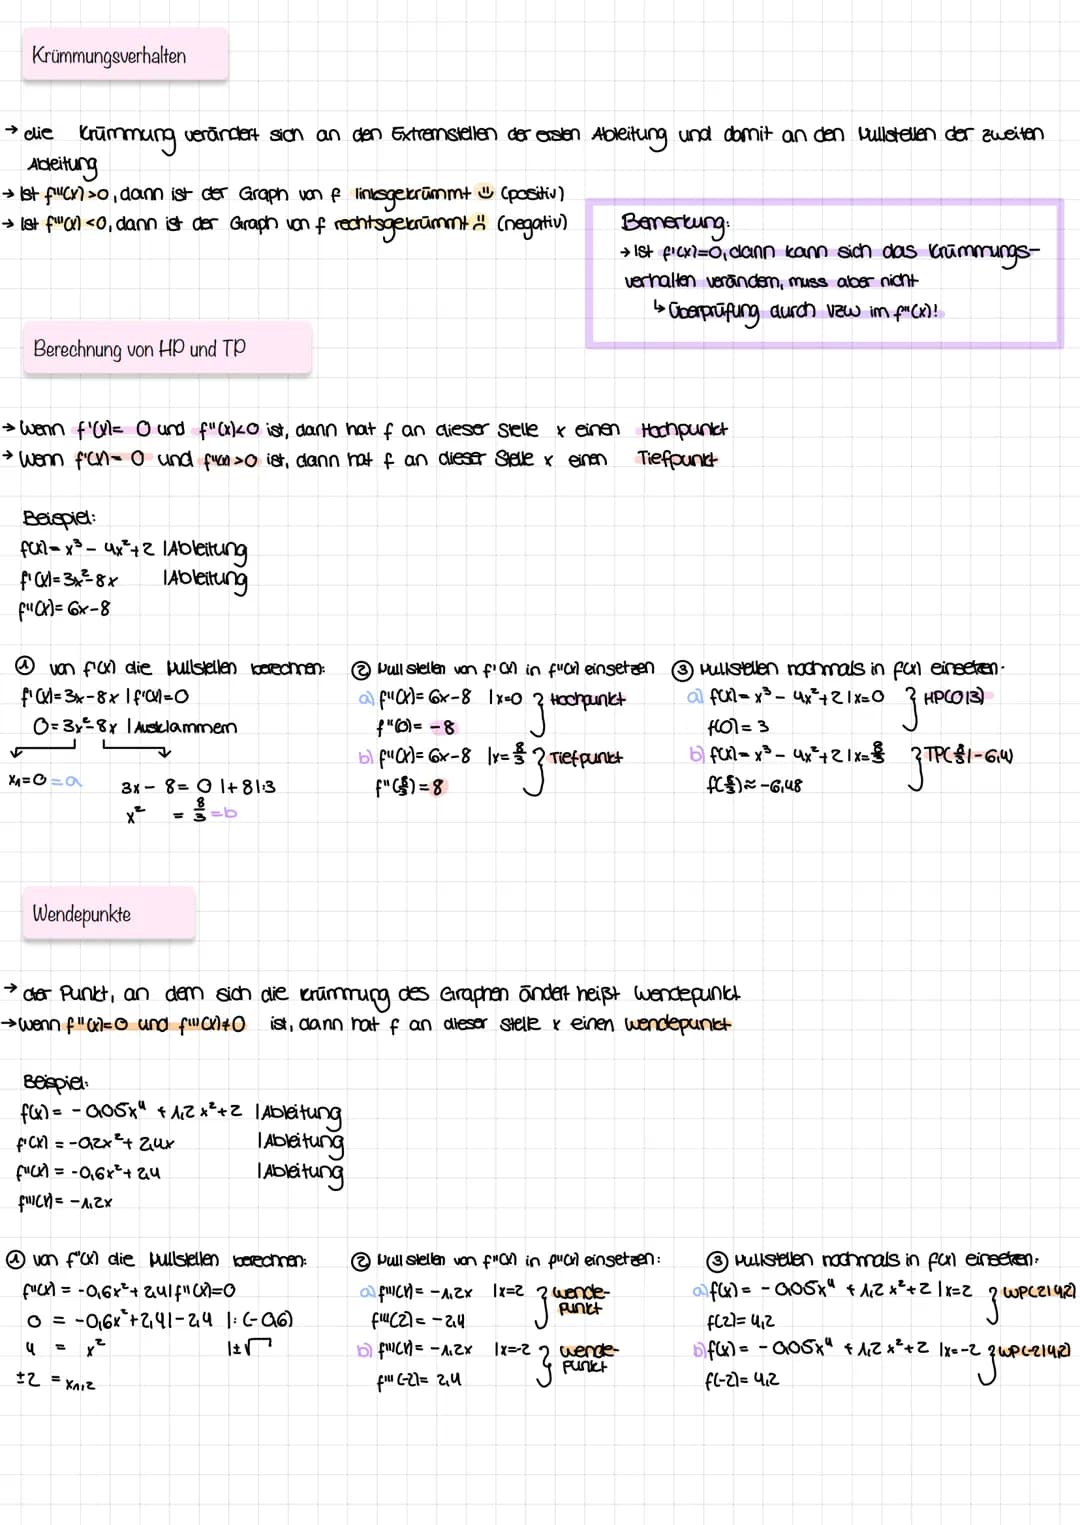 Krümmungsverhalten
→ die Krümmung verändert sich an den Extremstellen der ersten Ableitung und damit an den Nullstellen der zweiten
Ableitung
→ Ist f''(x)>0, dann ist der Graph von f linksgekrümmt (positiv)
→ Ist f''(x)<0, dann ist der Graph von f rechtsgekrümmt (negativ)
Bemerkung:
→ Ist f'(x)=0, dann kann sich das Krümmungs-
verhalten verändern, muss aber nicht
↳ Überprüfung durch VZW im f''(x)!
Berechnung von HP und TP
→ Wenn f'(x)= 0 und f''(x)<0 ist, dann hat f an dieser Stelle x einen Hochpunkt
→ Wenn f'(x)= 0 und f''(x)>0 ist, dann hat f an dieser Stelle x einen Tiefpunkt
Beispiel:
f(x)= x³ - 4x²+2 |Ableitung
f'(x)=3x²-8x |Ableitung
f''(x)= 6x-8
① von f'(x) die Nullstellen berechnen:
f'(x)=3x-8x |f'(x)=0
0=3x²-8x |Ausklammern
x₁=0 =a
3x - 8= 0 |+8|:3
x² = 8/3 =b
② Nullstellen von f'(x) in f''(x) einsetzen
a) f''(x)= 6x-8 |x=0 } Hochpunkt
f''(0)= -8
b) f''(x)= 6x-8 |x=8/3 } Tiefpunkt
f''(8/3)=8
③ Nullstellen nochmals in f(x) einsetzen.
a) f(x)= x³ - 4x²+2 |x=0 } HP(0|3)
f(0)= 3
b) f(x)= x³ - 4x²+2 |x=8/3 } TP(8/3|-6,4)
f(8/3)≈-6,48
Wendepunkte
→ der Punkt, an dem sich die Krümmung des Graphen ändert heißt Wendepunkt
→ wenn f''(x)=0 und f'''(x)≠0 ist, dann hat f an dieser Stelle x einen Wendepunkt
Beispiel:
f(x)= -0,05x⁴ +1,2x²+2 |Ableitung
f'(x) = -0,2x²+2,4x |Ableitung
f''(x) = -0,6x²+2,4 |Ableitung
f'''(x)= -1,2x
① von f''(x) die Nullstellen berechnen:
f''(x) = -0,6x²+2,4|f''(x)=0
0 = -0,6x²+2,4|-2,4 |:(-0,6)
4 = x² |±√
±2 = x₁,₂
② Nullstellen von f''(x) in f''(x) einsetzen:
a) f'''(x)= -1,2x |x=2 } Wende-
punkt
f'''(2)= -2,4
b) f'''(x)= -1,2x |x=-2 } Wende-
punkt
f'''(-2)= 2,4
③ Nullstellen nochmals in f(x) einsetzen.
a) f(x)= -0,05x⁴ +1,2x²+2 |x=2 } WP(2|4,2)
f(2)= 4,2
b) f(x)= -0,05x⁴ +1,2x²+2 |x=-2 } WP(-2|4,2)
f(-2)= 4,2